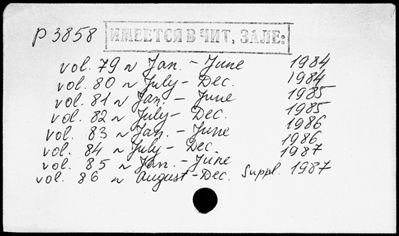 р 3858 ИМЕЕТСЯ В ЧИТ, ЗАЛЕ:
vol. 79 ~ Jan. - June 1984
vol. 80 ~ July - Dec. 1984
vol. 81 ~ Jan. - June 1985
vol. 82 ~ July - Dec. 1985
vol. 83 ~ Jan. - June 1986
vol. 84 ~ July - Dec. 1986
vol. 85 ~ Jan. - June 1987
vol. 86 ~ august - Dec. Suppl. 1987